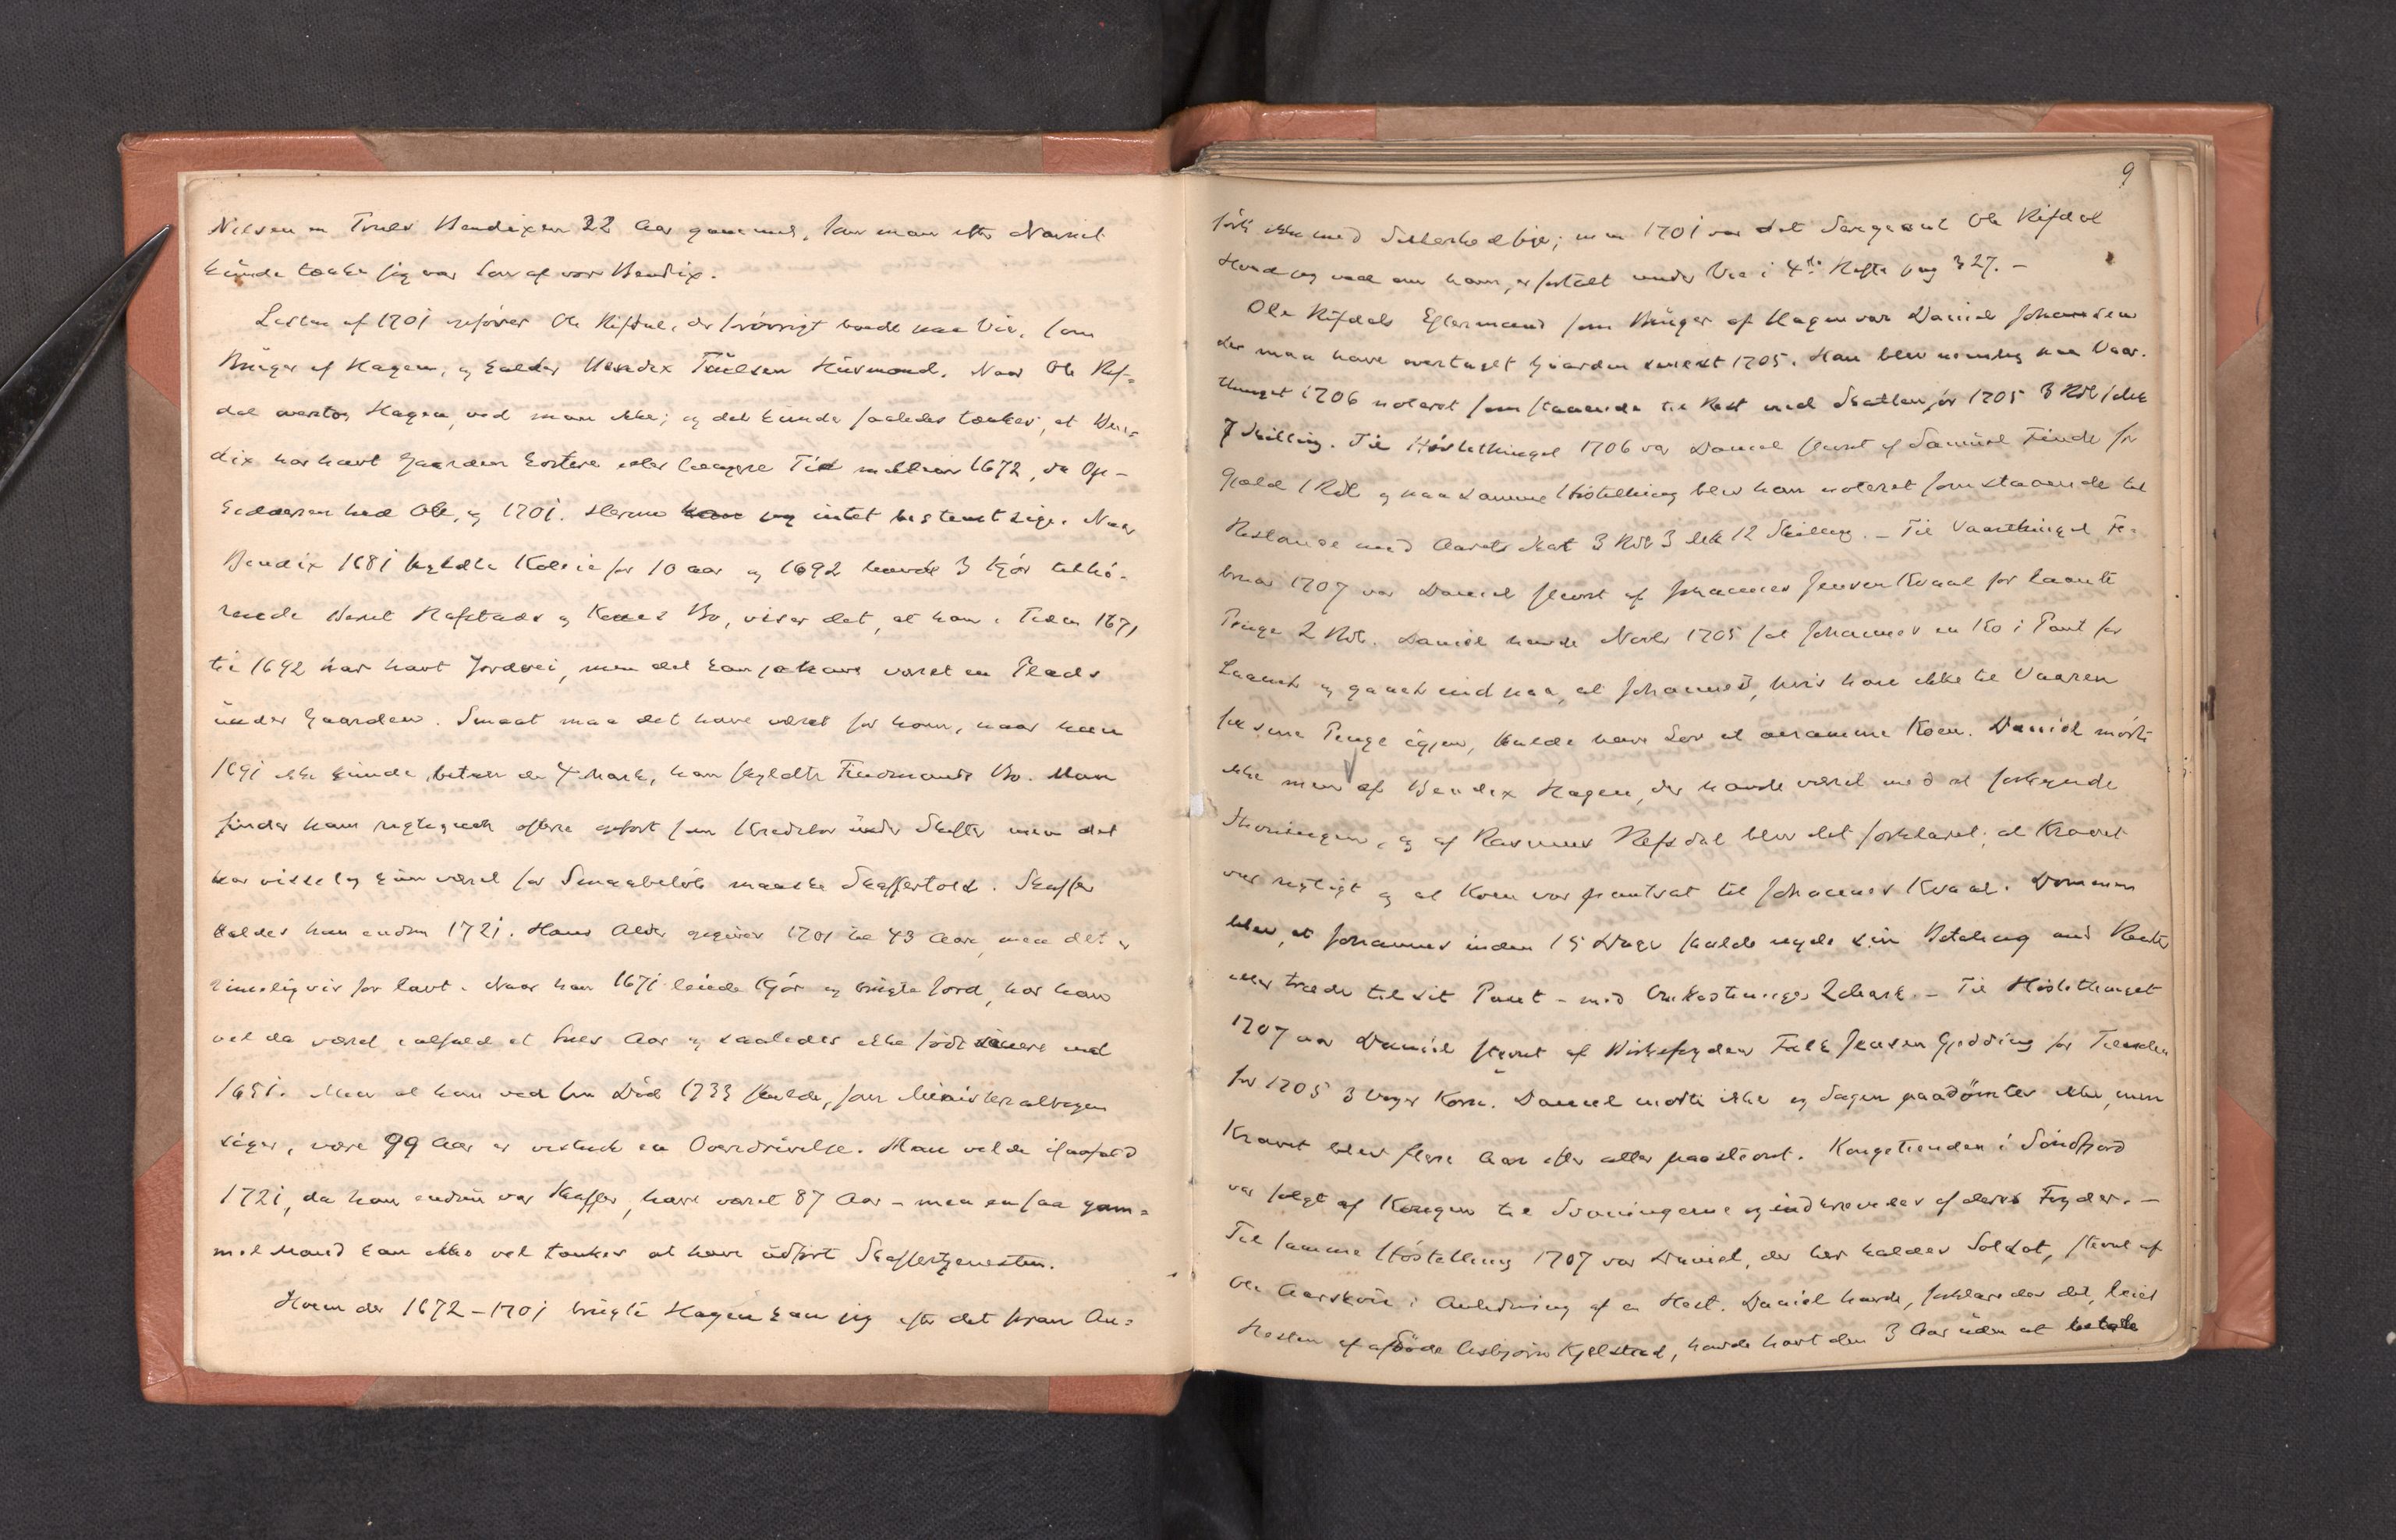 Nilsen en Truls Bendixen 22 Aar gammel, som man efter Navnet
kunde tænke sig var Søn af vor Bendix.
Listen af 1701 opfører Ole Rifsdal, der forøvrigt boede paa Vie, som
Bruger af Hagen, og kalder Bendix Trulsen Husmand. Naar Ole Ref-
dal overtog Hagen, ved man ikke; og det kunde saaledes tænkes, at Ben-
dix har havt Gaarden kortere eller længere Tid mellem 1672, da Op-
sidderen hed Ole, og 1701. Herom kan jeg intet bestemt sige. Naar
Bendix 1681 skyldte Koleie for 10 aar og 1692 havde 3 Kjør tilhø-
rende Bernt Rafstads og Kones Bo, viser det, at han i Tiden 1671
til 1692 har havt Jordvei, men det kan jo have været en Plads
under Gaarden. Smaat maa det have været for ham, naar han
1691 ikke kunde betale de 4 Mark, han skyldte Bo. Man
finder ham rigtignok oftere opført som Kreditor under Skifter men det
har visselig kun været for Smaabeløb maaske Skaffertold. Skaffer
kaldes han endnu 1721. Hans Alder opgives 1701 til 43 Aar, men det er
rimeligvis for lavt. Naar han 1671 leiede Kjør og brugte Jord, har han
vel da været ialfald et Snes Aar og saaledes ikke født senere end
1651. Men at han ved sin Død 1733 skulde, som Ministerialbogen
siger, være 99 Aar er vistnok en Overdrivelse. Han vilde isaafald
1721, da han endnu var Skaffer, have været 87 Aar - men en saa gam-
mel Mand kan ikke vel tænkes at have udført Skaffertjenesten.
Hvem der 1672-1701 brugte Hagen kan jeg efter det foran An-
9
førte ikke med Sikkerhed sige; men 1701 var det Sergeant Ole Rifsdal
Hvad jeg ved om ham, er fortalt under Vie i 4de Hefte pag 327. -
Ole Rifsdals Eftermand som Bruger af Hagen var Daniel Johansen
der maa have overtaget Gaarden senest 1705. Han blev nemlig paa Vaar-
thinget 1706 noteret som staaende til Rest med Skatten for 1705 3 Rdl 1 Mk
7 Skilling. Til Høstethinget 1706 var Daniel stevnt af Samuel Tinde for
Gjæld 1 Rdl og paa samme Høstething blev han noteret som staaende til
Restance med Aarets Skat 3 Rdl 3 Mk 12 Skilling. - Til Vaarthinget Fe-
bruar 1707 var Daniel stevnt af Johannes Jensen Kvaal for laante
Penge 2 Rdl. Daniel havde Novbr 1705 sat Johannes en Ko i Pant for
Laanet og gaaet ind paa, at Johannes, hvis han ikke til Vaaren
fik sine Penge igjen, skulde have Lov at annamme Koen. Daniel mødte
ikke men af Bendix Hagen, der havde været med at forkynde
Stevningen, og af Rasmus Refsdal blev det forklaret, at Kravet
var rigtigt og at Koen var pantsat til Johannes Kvaal. Dommen
blev, at Johannes inden 15 Dage skulde nyde sin Betaling med Renter
eller træde til sit Pant - med Omkostninger 2 Mark. - Til Høstethinget
1707 var Daniel stevnt af Kirkefogden Falk Jensen Gjedding for Tienden
for 1705 3 Voger Korn. Daniel mødte ikke og Sagen paadømtes ikke, men
Kravet blev flere Aar efter atter paastevnt. Kongetienden i Søndfjord
var solgt af Kongen til og indkrævedes af deres Fogder. -
Til samme Høstething 1707 var Daniel, der her kaldes Soldat, stevnt af
Ole Aarskoie i Anledning af en Hest. Daniel havde, forklaredes det, leiet
Hesten af afdøde Asbjørn Kjelstad, havde havt den 3 Aar uden at betale